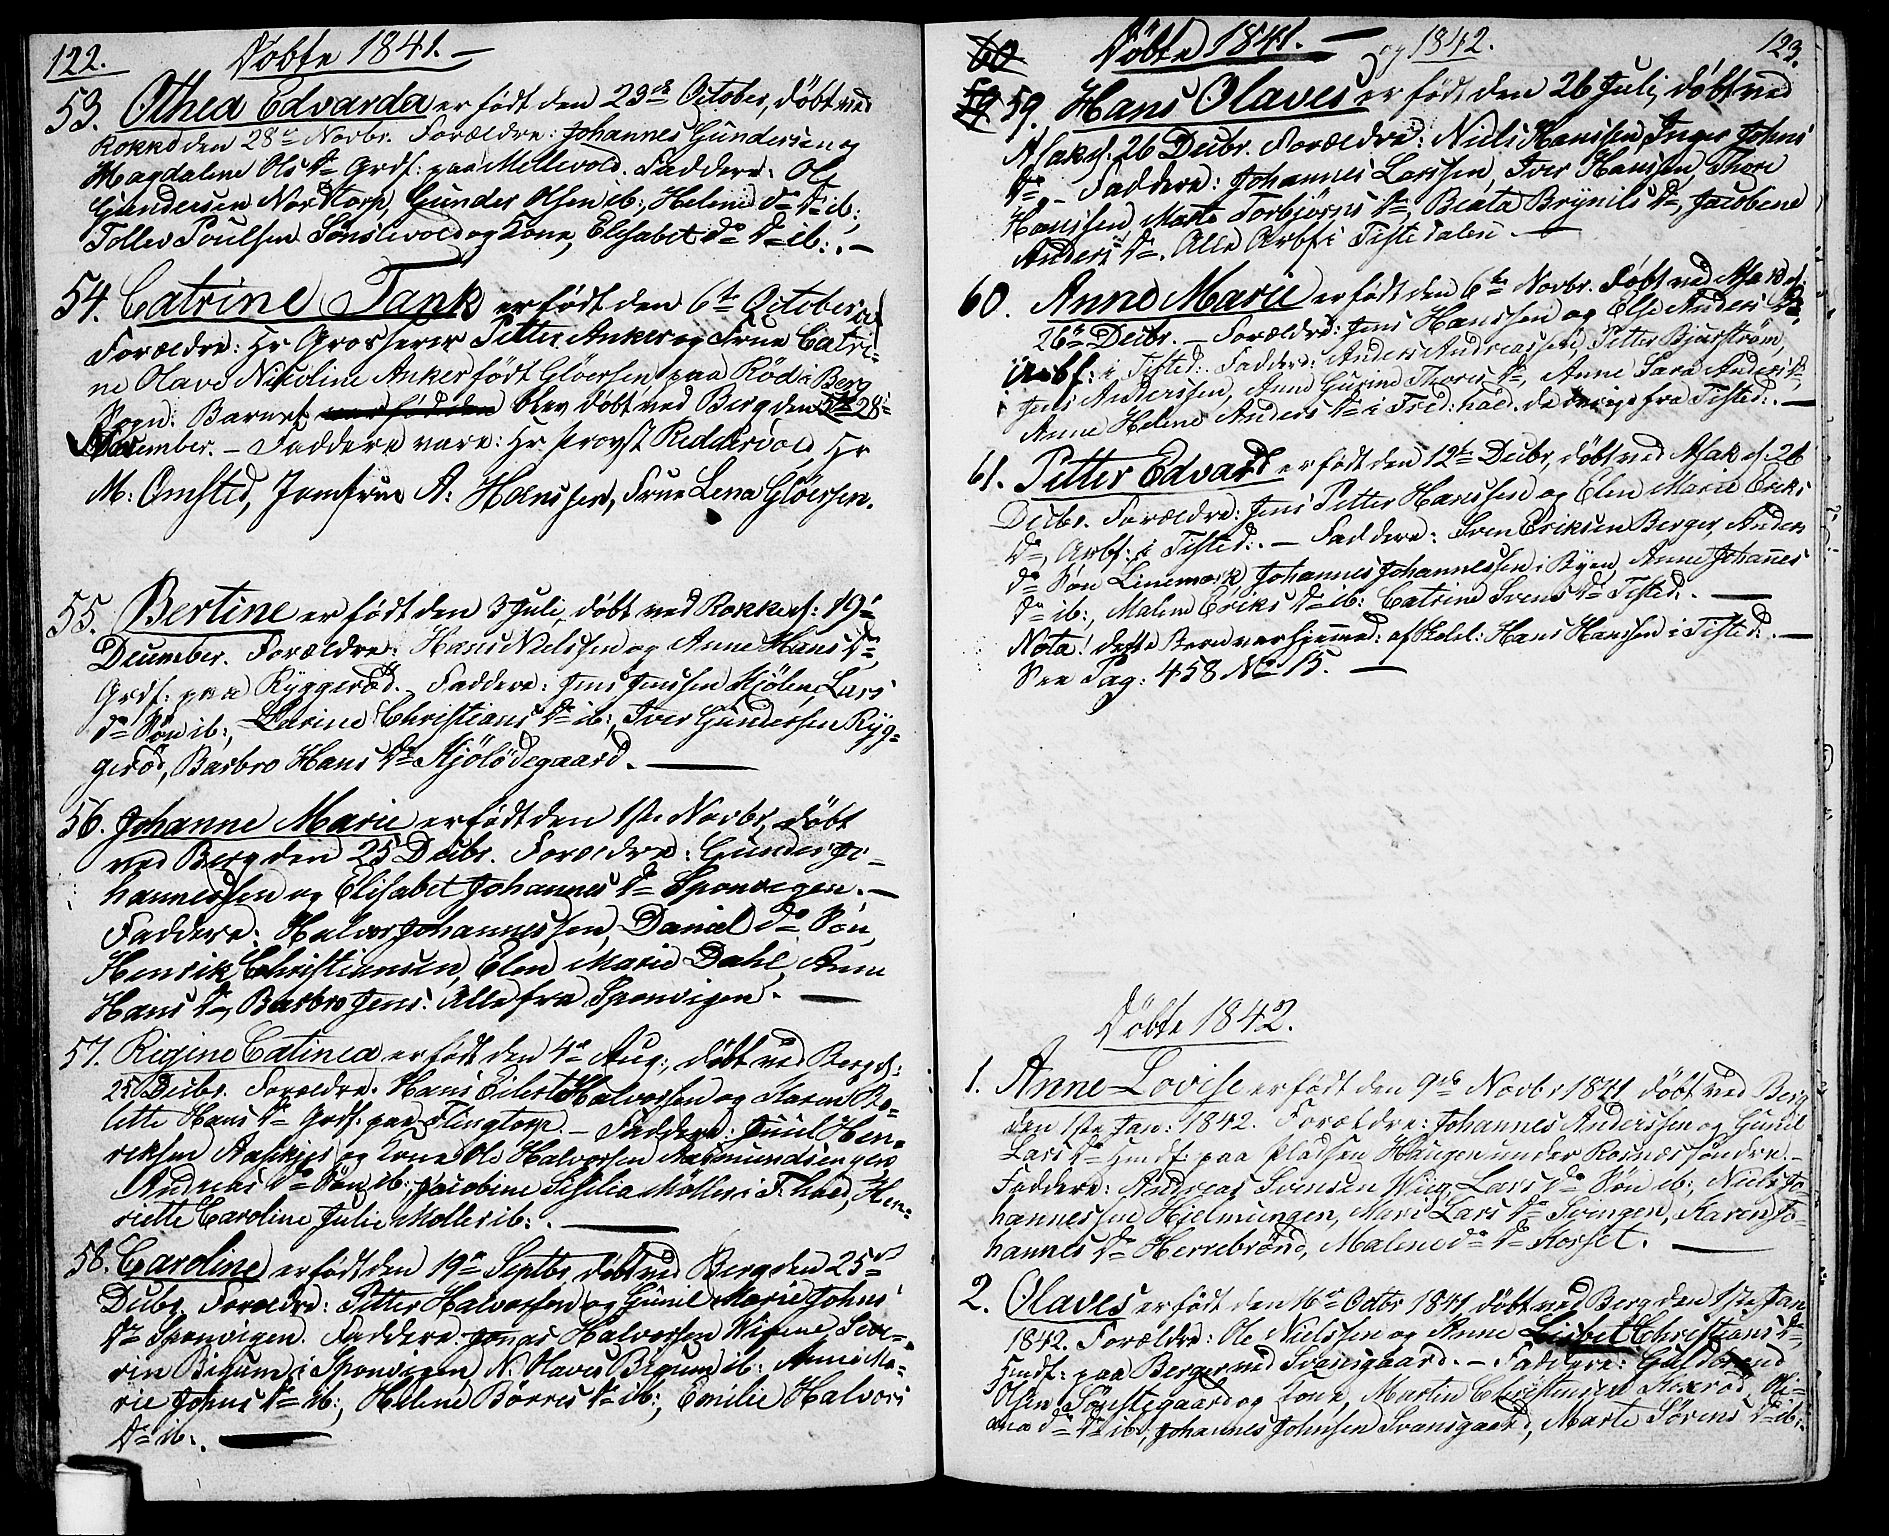 122. Döbte 1841. —
53. Othea Edvarda er født den 29de October, døbt ved
Rokke den 28de Novbr. Forældre: Johannes Gundersen og
Magdalene Ols Dr Grdf: paa Mellevold. Faddere: Ole
Gundersen Nordtorp, Gunder Olsen ib:, Helene do Dr ib:,
Tollev Poulsen Sönslevold og Kone, Elisabet do Dr ib: . —
54. Catrine Tank er født den 6te October
Forældre: Hr Grosserer Petter Anker og Frue Catri-
ne Olave Nikoline Anker født Glöersen paa Röd i Berg
Sogn: Barnet blev døbt ved Berg den 28de
December. — Faddere vare: Hr Provst Reddervold, Hr
M: Omsted, Jomfrue A: Hansen, Frue Lena Glöersen.
55. Bertine er født den 3 Juli, døbt ved Rokke d: 19de
December. Forældre: Hans Nielssen og Anne Hans Dr
Grdf. paa Ryggeröd. Faddere: Jens Jenssen Kjölen, Lars
do Søn ib:, Karine Christians Dr ib:, Iver Gunderssen Ryg-
geröd, Barbro Hans Dr Kjölödegaard. —
56. Johanne Marie er født den 1ste Novbr, døbt
ved Berg den 25 Decbr. Forældre: Gunder Jo-
hannessen og Elisabet Johannes Dr Sponvigen. —
Faddere: Halvor Johannessen, Daniel do Søn,
Henrik Christiansen, Elen Marie Dahl, Anne
Hans Dr, Barbro Jens: Alle fra Sponvigen. —
57. Regine Catinea er født den 4de Aug:, døbt ved Berg d:
25 Decbr. Forældre: Hans Eilert Halvorssen og Karen No-
lette Hans Dr Grdf: paa Flingtorp. — Faddere: Juul Hen-
riksen og Kone Ole Halvorsen
Andreas do Søn ib:, Jacobine Sesilia Möller i F:hald, Hen-
riette Caroline Julie Moller ib: . —
58. Caroline er født den 19de Septbr, døbt ved Berg den 25de
Decbr. Forældre: Petter Halvorsen og Gunil Marie Johns
Dr Sponvigen. Faddere Jonas Halvorsen Seve-
rin Bigum i Sponvigen N: Olaves Bigum ib: Anne Ma-
rie Johns Dr ib:, Helene Börres Dr ib:, Emilie Halvors
Dr ib: . —
60 Döbte 1841. — og 1842. 123.
59 59. Hans Olaves er født den 26 Juli, døbt ved
Asak d. 26 Decbr. Forældre: Niels Hanssen, Inger Johns
Dr — Faddere: Johannes Larssen, Iver Hanssen, Thore
Hanssen, Marte Torbjörns Dr, Beata Brynils Dr, Jacobene
Anders Dr. Alle Arbf i Tistedalen —
60. Anne Marie er født den 6te Novbr. døbt ved Asak d:
26de Decbr. — Forældre: Jens Hanssen og Else Anders Dr
Arbf: i Tisted: Faddere: Anders Andreassen, Petter Bjurström,
Jens Anderssen, Anne Gurine Thores Dr, Anne Sara Anders Dr
Anne Helene Anders Dr i Fred:hald. de övrige fra Tisted: . —
61. Petter Edvard er født den 12te Decbr, døbt ved Asak d. 26
Decbr. Forældre: Jens Petter Hanssen og Elen Marie Eriks
Dr Arbf: i Tisted: . — Faddere: Sven Eriksen Berger, Anders
do Søn Linemark, Johannes Johannessen i Byen, Anne Johanes
Dr ib:, Malene Eriks Dr ib: Catrine Svens Dr Tisted: . —
Nota! dette Barn var hjemmed: af Skolel: Hans Hanssen i Tisted: . —
See Pag: 458 No 15. —
Döbte 1842.
1. Anne Lovise er født den 9de Novbr 1841 døbt ved Berg
den 1ste Jan: 1842. Forældre: Johannes Anderssen og Gunil
Lars Dr Husf: paa Pladsen Haugen under Rosnæs söndre. —
Faddere: Andreas Svensen Wiig, Lars do Søn ib:, Niels Jo-
hannessen Hjelmungen, Mari Lars Dr Svingen, Karen Jo-
hannes Dr Herrebrönd, Malene do Dr Korset. —
2. Olaves er født den 16de Octbr 1841, døbt ved Berg den 1ste Jan
1842. Forældre: Ole Nielssen og Anne Lisbet Christians Dr
Husf: paa Berger ved Svensgaard. — Faddere: Guldbrand
Olsen Sönstegaard og Kone, Martin Christensen Skaröd, Oli-
ana do Dr ib:, Johannes Johnsen Svansgaard, Marte Sörens Dr ib: